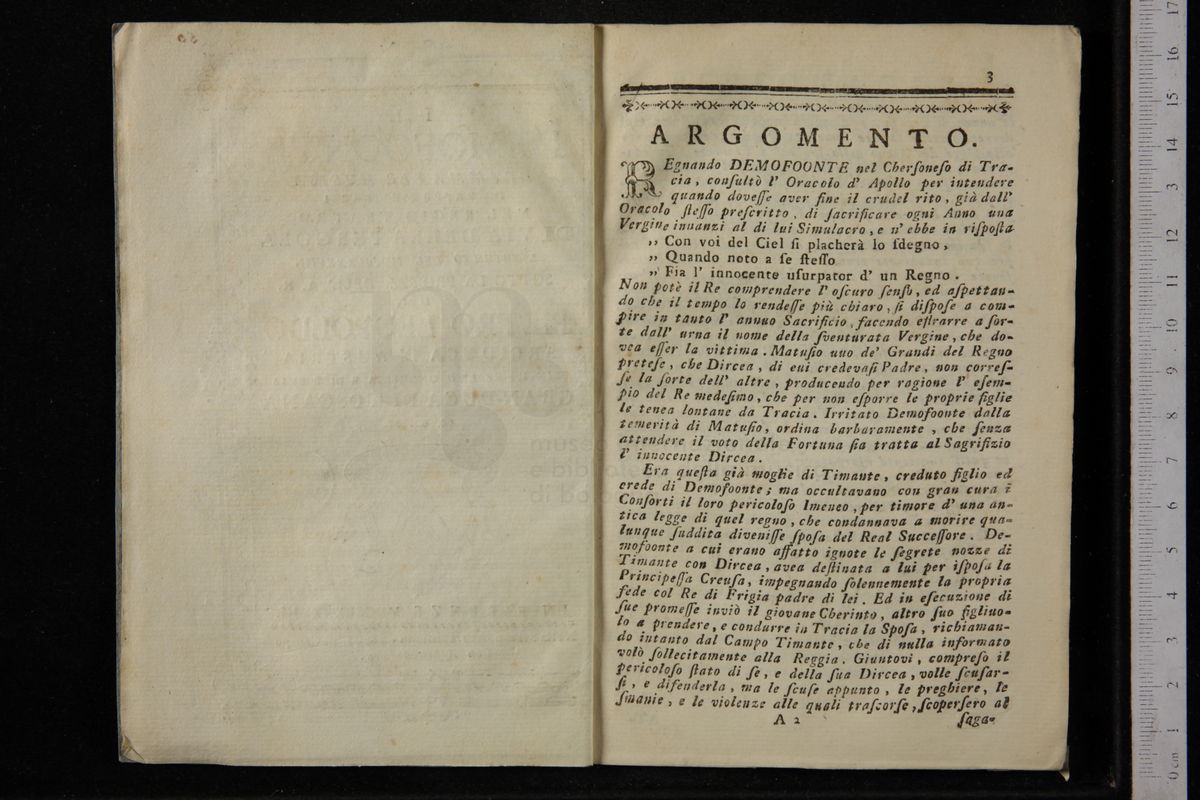 3
ARGOMENTO.
REgnando DEMOFOONTE nel Cherſoneſo di Tra-
cia, conſultò l' Oracolo d' Apollo per intendere
quando doveſſe aver fine il crudel rito, già dall'
Oracolo ſteſſo preſcritto, di ſacrificare ogni Anno una
Vergine innanzi al di lui Simulacro, e n' ebbe in riſpoſta
,, Con voi del Ciel ſi placherà lo ſdegno,
,, Quando noto a ſe ſteſſo
,, Fia l' innocente uſurpator d' un Regno.
Non potè il Re comprendere l' oſcuro ſenſo, ed aſpettan-
do che il tempo lo rendeſſe più chiaro, ſi diſpoſe a com-
pire in tanto l' annuo Sacrificio, facendo eſtrarre a ſor-
te dall' urna il nome della ſventurata Vergine, che do-
vea eſſer la vittima. Matuſio uno de' Grandi del Regno
preteſe, che Dircea, di cui credevaſi Padre, non correſ-
ſe la ſorte dell' altre, producendo per ragione l' eſem-
pio del Re medeſimo, che per non eſporre le proprie figlie
le tenea lontane da Tracia. Irritato Demofoonte dalla
temerità di Matuſio, ordina barbaramente, che ſenza
attendere il voto della Fortuna ſia tratta al Sagrifizio
l' innocente Dircea.
Era queſta già moglie di Timante, creduto figlio ed
erede di Demofoonte; ma occultavano con gran cura i
Conſorti il loro pericoloſo Imeneo, per timore d' una an-
tica legge di quel regno, che condannava a morire qua-
lunque ſuddita diveniſſe ſpoſa del Real Succeſſore. De-
mofoonte a cui erano affatto ignote le ſegrete nozze di
Timante con Dircea, avea deſtinata a lui per iſpoſa la
Principeſſa Creuſa, impegnando ſolennemente la propria
fede col Re di Frigia padre di lei. Ed in eſecuzione di
ſue promeſſe inviò il giovane Cherinto, altro ſuo figliuo-
lo a prendere, e condurre in Tracia la Spoſa, richiaman-
do intanto dal Campo Timante, che di nulla informato
volò ſollecitamente alla Reggia. Giuntovi, compreſo il
pericoloſo ſtato di ſe, e della ſua Dircea, volle ſcuſar-
ſi, e difenderla, ma le ſcuſe appunto, le preghiere, le
ſmanie, e le violenze alle quali traſcorſe, ſcoperſero al
A 2 ſaga-
museo
e biblio
di bo
0 cm 1 2 3 4 5 6 7 8 9 10 11 12 13 14 15 16 17